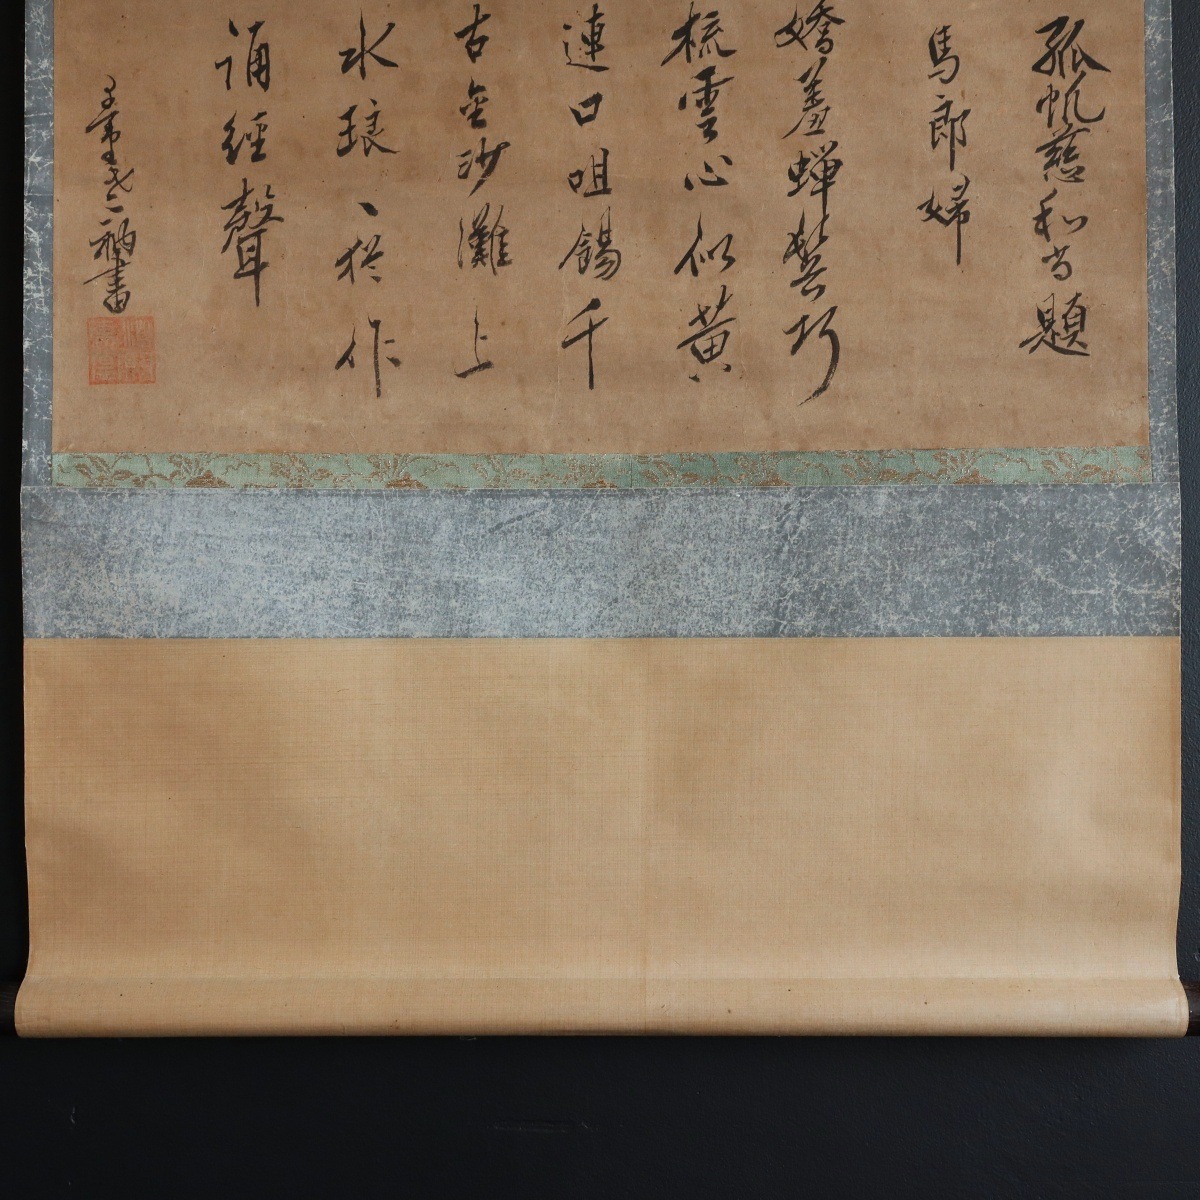 孤帆慈和尚題
馬郎婦
嬌羞蟬鬢巧
梳雲心似黃
連口咀錫千
古金沙灘上
水琅、猶作
誦經聲